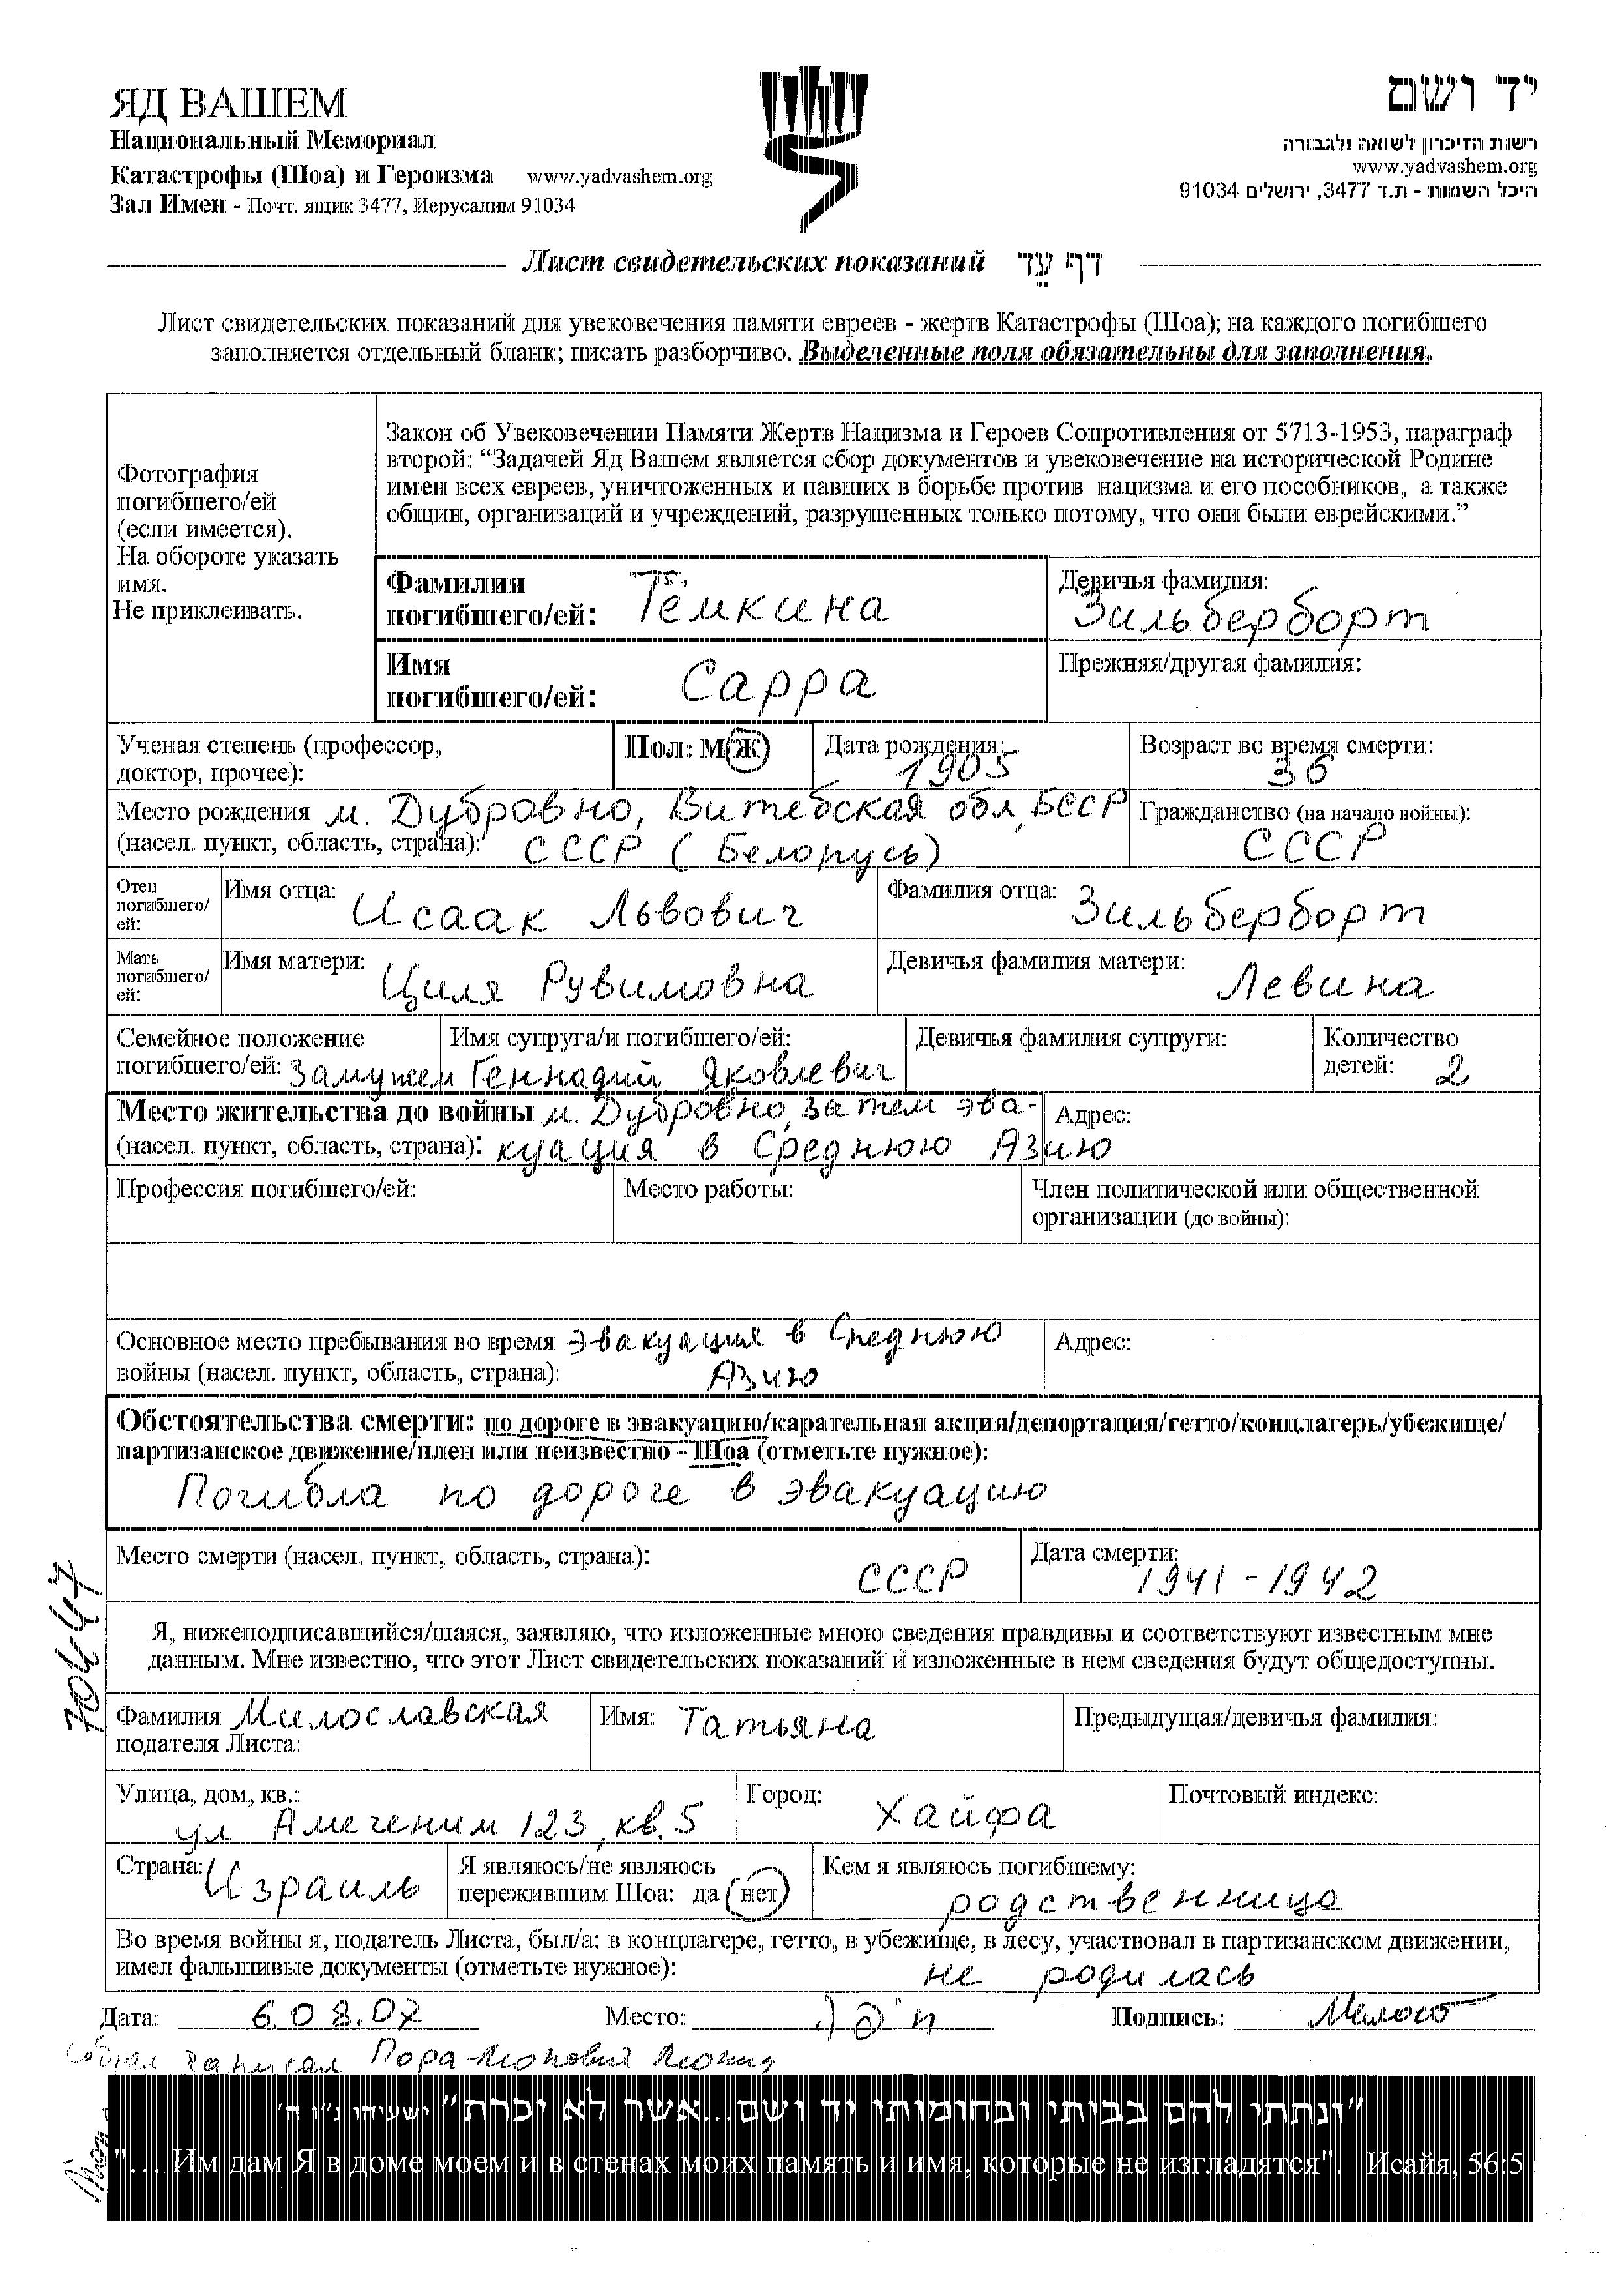 ЯД ВАШЕМ
Национальный Мемориал
Катастрофы (Шоа) и Героизма www.yadvashem.org
Зал Имен - Почт. ящик 3477, Иерусалим 91034
יד ושם
רשות הזיכרון לשואה ולגבורה
www.yadvashem.org
היכל השמות - ת.ד 3477, ירושלים 91034
Лист свидетельских показаний דף עֵד
Лист свидетельских показаний для увековечения памяти евреев - жертв Катастрофы (Шоа); на каждого погибшего
заполняется отдельный бланк; писать разборчиво. Выделенные поля обязательны для заполнения.
Фотография
погибшего/ей
(если имеется).
На обороте указать
имя.
Не приклеивать.
Закон об Увековечении Памяти Жертв Нацизма и Героев Сопротивления от 5713-1953, параграф
второй: “Задачей Яд Вашем является сбор документов и увековечение на исторической Родине
имен всех евреев, уничтоженных и павших в борьбе против нацизма и его пособников, а также
общин, организаций и учреждений, разрушенных только потому, что они были еврейскими.”
Фамилия
погибшего/ей: Тёмкина
Девичья фамилия:
Зильберборт
Имя
погибшего/ей: Сарра
Прежняя/другая фамилия:
Ученая степень (профессор,
доктор, прочее):
Пол: М/Ж
Дата рождения:
1905
Возраст во время смерти:
36
Место рождения м. Дубровно, Витебская обл, БССР
(насел. пункт, область, страна): СССР (Белорусь)
Гражданство (на начало войны):
СССР
Отец
погибшего/
ей:
Имя отца: Исаак Львович
Фамилия отца: Зильберборт
Мать
погибшего/
ей:
Имя матери: Циля Рувимовна
Девичья фамилия матери: Левина
Семейное положение
погибшего/ей: Замужем
Имя супруга/и погибшего/ей:
Геннадий Яковлевич
Девичья фамилия супруги:
Количество
детей: 2
Место жительства до войны м. Дубровно, затем эва-
(насел. пункт, область, страна): куация в Среднюю Азию
Адрес:
Профессия погибшего/ей:
Место работы:
Член политической или общественной
организации (до войны):
Основное место пребывания во время эвакуация в Среднюю
войны (насел. пункт, область, страна): Азию
Адрес:
Обстоятельства смерти: по дороге в эвакуацию/карательная акция/депортация/гетто/концлагерь/убежище/
партизанское движение/плен или неизвестно - Шоа (отметьте нужное):
Погибла по дороге в эвакуацию
Место смерти (насел. пункт, область, страна):
СССР
Дата смерти:
1941-1942
Я, нижеподписавшийся/шаяся, заявляю, что изложенные мною сведения правдивы и соответствуют известным мне
данным. Мне известно, что этот Лист свидетельских показаний и изложенные в нем сведения будут общедоступны.
Фамилия Милославская
подателя Листа:
Имя: Татьяна
Предыдущая/девичья фамилия:
Улица, дом, кв.:
ул Амегеним 123, кв. 5
Город: Хайфа
Почтовый индекс:
Страна: Израиль
Я являюсь/не являюсь
пережившим Шоа: да нет
Кем я являюсь погибшему:
родственница
Во время войны я, податель Листа, был/а: в концлагере, гетто, в убежище, в лесу, участвовал в партизанском движении,
имел фальшивые документы (отметьте нужное): не родилась
Дата: 6.08.07 Место: חיפה Подпись:
записал Леонид
"ונתתי להם בביתי ובחומותי יד ושם...אשר לא יכרת" ישעיהו נ"ו ה'
"... Им дам Я в доме моем и в стенах моих память и имя, которые не изгладятся". Исайя, 56:5